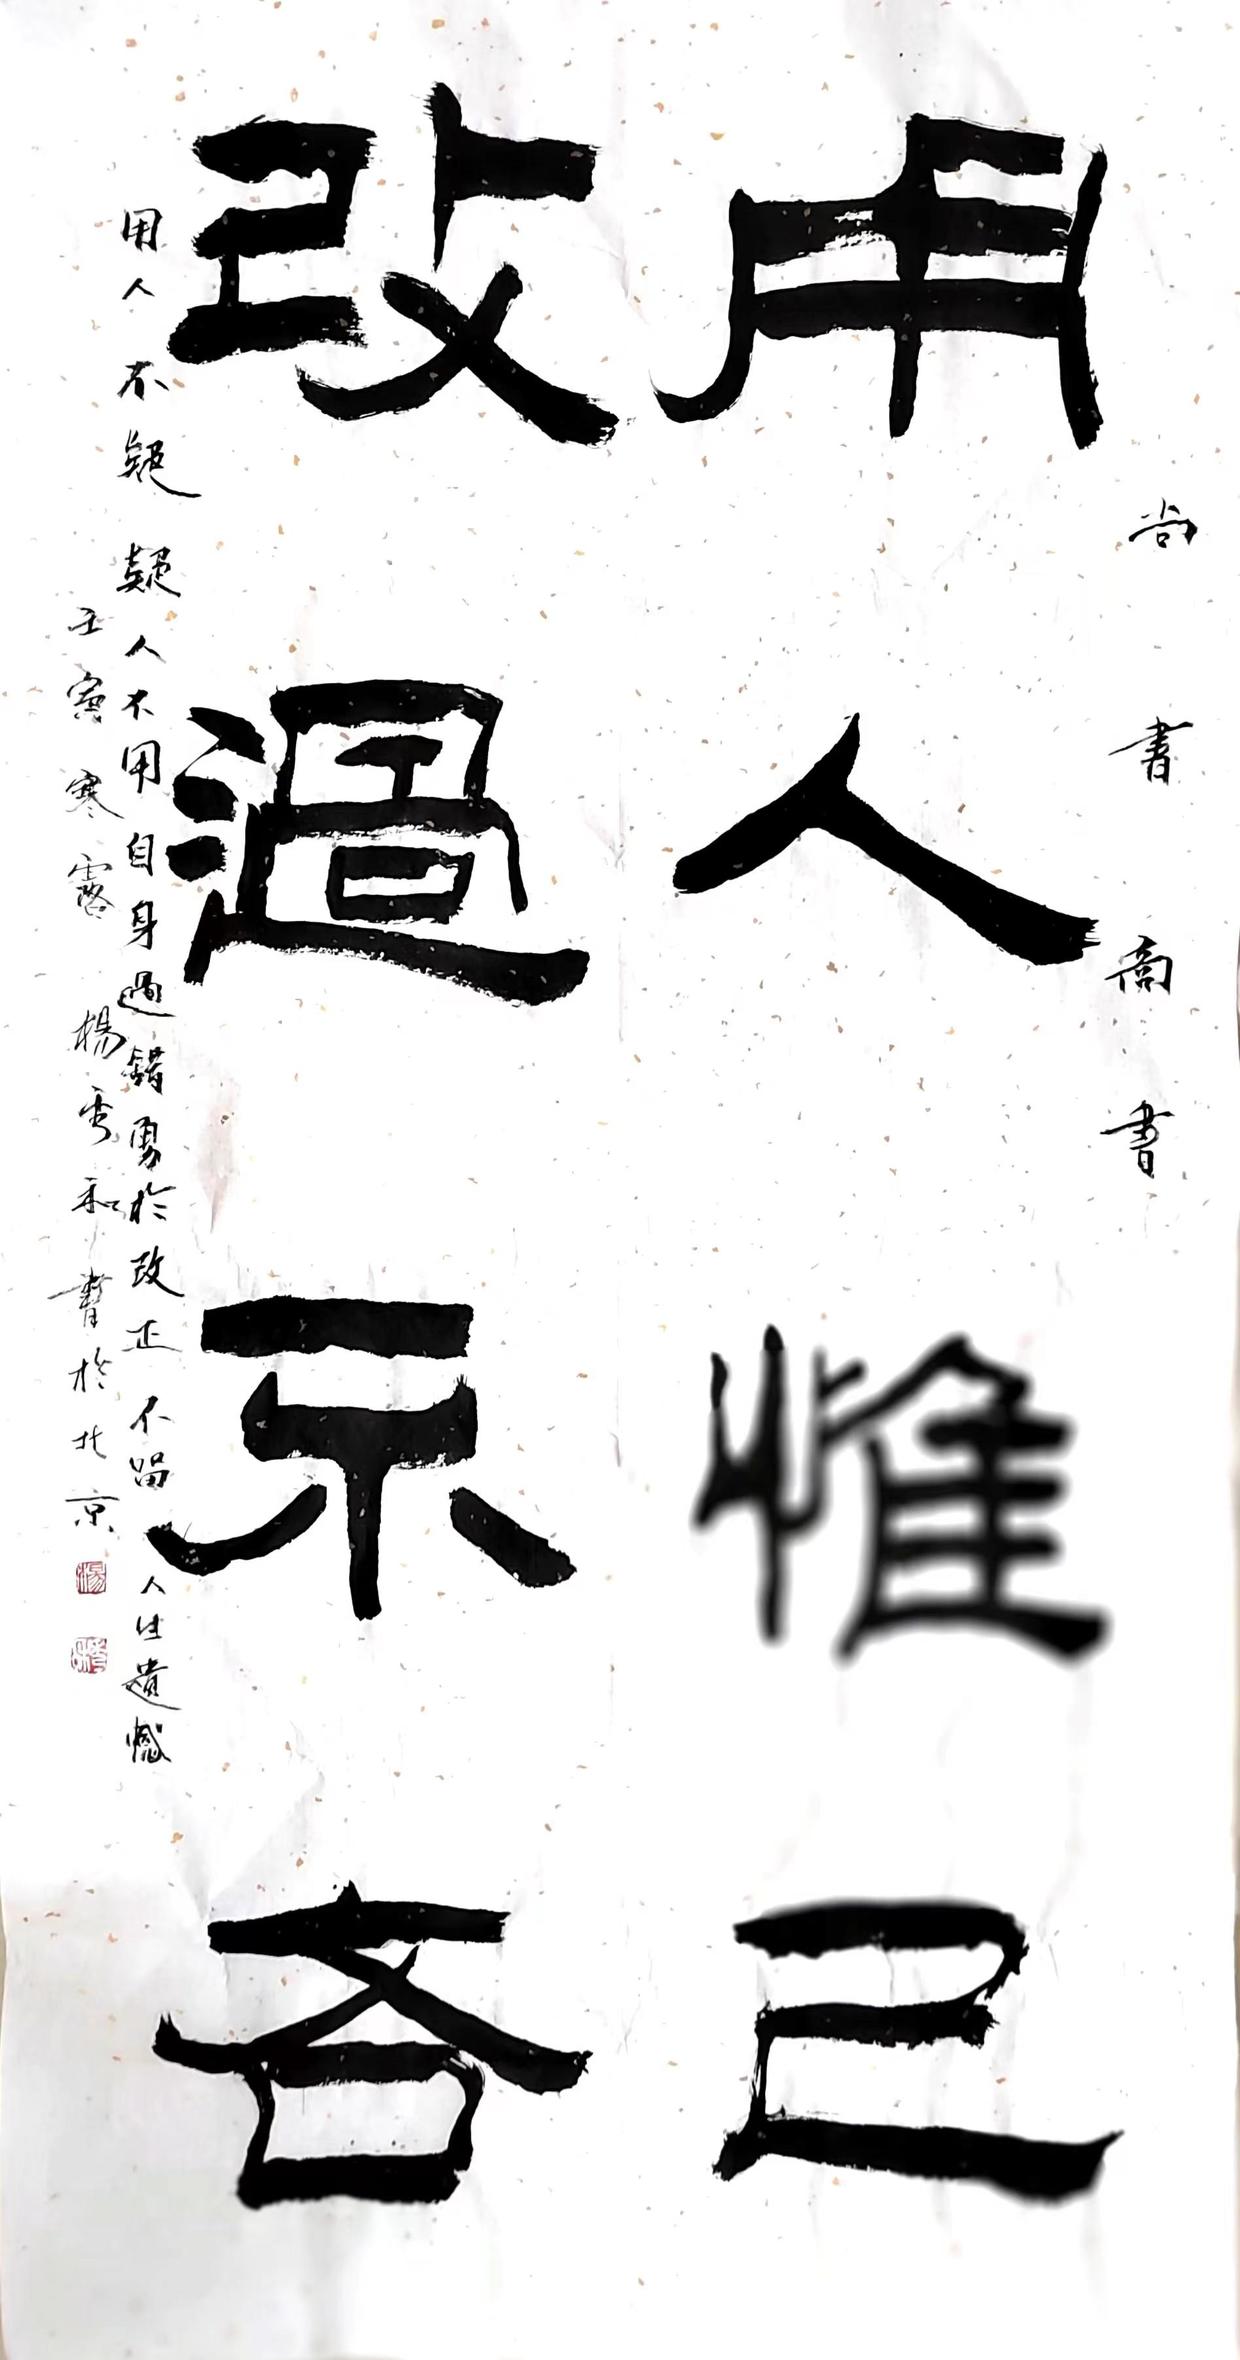 尚書商書
用人惟己
改過不吝
用人不疑疑人不用自身過錯勇於改正不留人生遺憾
壬寅寒露楊秀和書於北京
楊
秀和